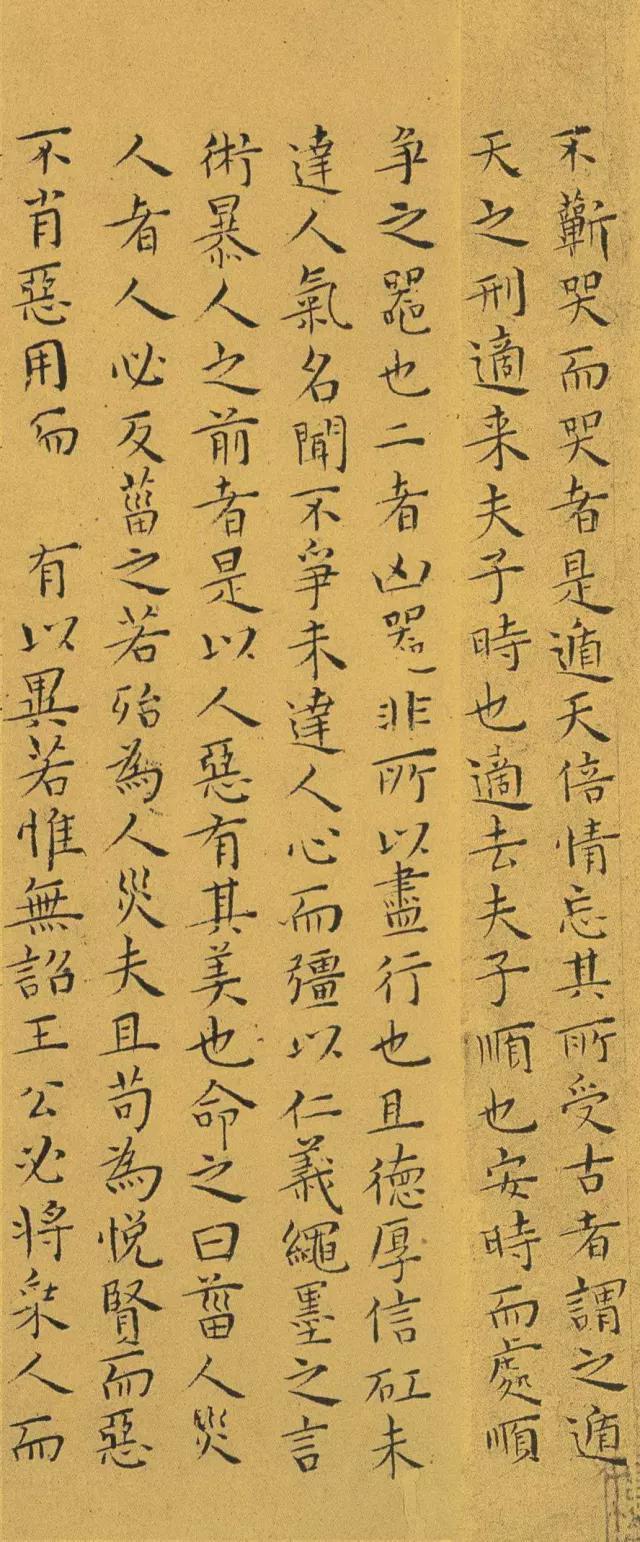 不蘄哭而哭者是遁天倍情忘其所受古者謂之遁
天之刑適来夫子時也適去夫子順也安時而處順
争之器也二者凶器非所以盡行也且德厚信矼未
達人氣名聞不爭未達人心而彊以仁義繩墨之言
術暴人之前者是以人惡有其美也命之曰菑人災
人者人必反菑之若殆為人災夫且苟為悅賢而惡
不肖惡用而 有以異若惟無詔王公必將乘人而